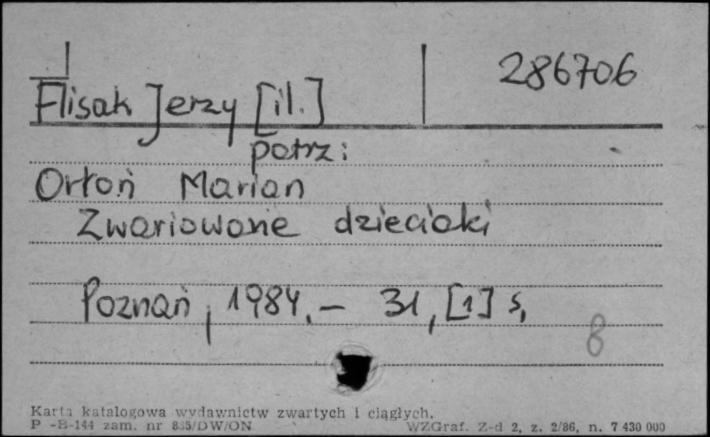 286706
Flisak Jerzy [il.]
patrz:
Orłoń Marian
Zwariowane dzieciaki
Poznań, 1984. – 31, [1] s.
8
Karta katalogowa wydawnictw zwartych i ciągłych.
P-B-144 zam. nr 835/DW/ON WZGraf. Z-d 2, z. 2/86, n. 7 430 000